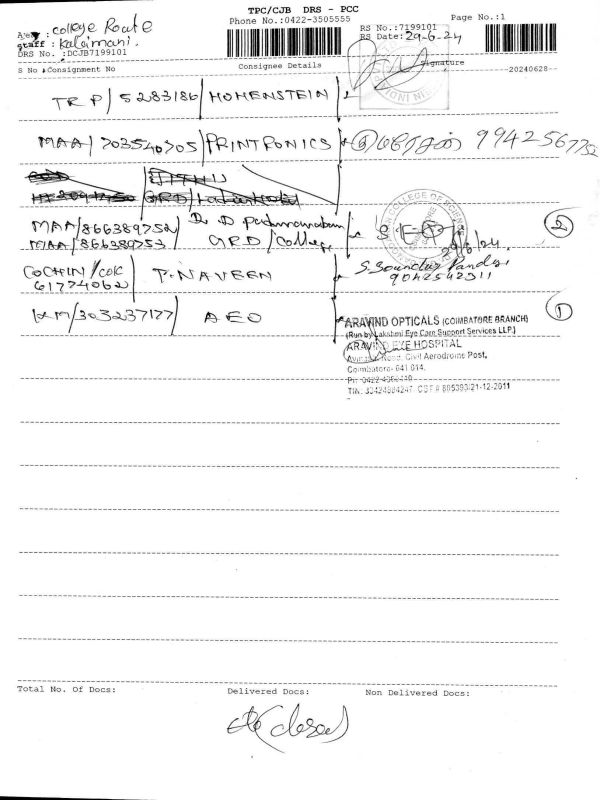 TPC/CJB DRS - PCC
Phone No.:0422-3505555
Page No.:1
Area : College Route
Staff : Kalaimani.
DRS No. :DCJB7199101
RS No.:7199101
RS Date: 29-6-24
S No Consignment No
Consignee Details
Signature
20240628
TRP/5283186/HOHENSTEIN
MAA/703540705/PRINTRONICS
9942567752
MAA/866389752/
MAA/866389753
Dr D Padmanaban
GRD/College
29/6/24.
S. Soundar Pandi
9042542311
②
COCHIN/COK
61774062
P.NAVEEN
KM/303237177/ AEO
①
ARAVIND OPTICALS (COIMBATORE BRANCH)
(Run by Lakshmi Eye Care Support Services LLP.)
ARAVIND EYE HOSPITAL
Avinashi Road, Civil Aerodrome Post,
Coimbatore- 641 014.
Total No. Of Docs:
Delivered Docs:
Non Delivered Docs:
(closed)